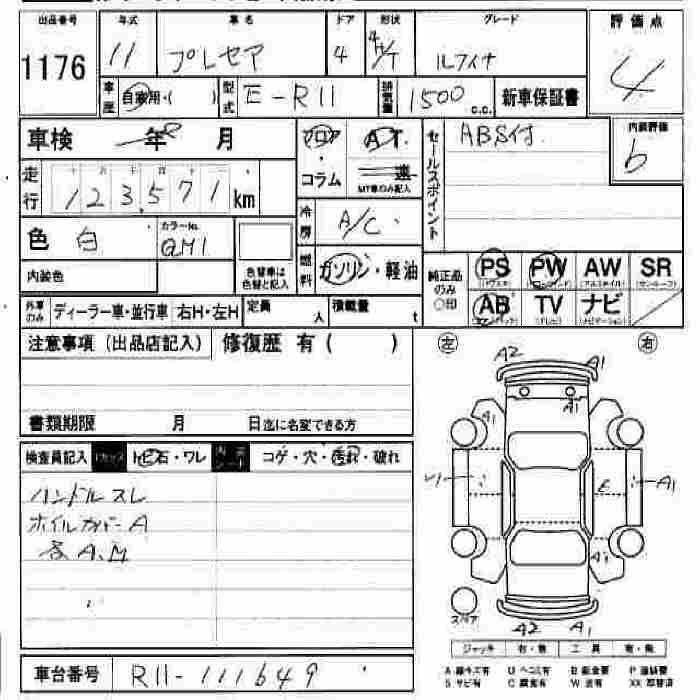 出品番号 年式 車名 ドア 形状 グレード 評価点
1176 11 プレセア 4 4H/T ルフィナ 4
車歴 自家用・( ) 型式 E-R11 排気量 1500 c.c. 新車保証書
車検 年 月 フロア・コラム AT 速 セールスポイント ABS付 内装評価 b
MT車のみ記入
走行 123,571 km
冷房 A/C
色 白 カラーNo. QM1
内装色 色替車は色替と記入 燃料 ガソリン・軽油 純正品のみ○印 PS PW AW SR
AB TV ナビ
外車のみ ディーラー車・並行車 右H・左H 定員 人 積載量 t
注意事項(出品店記入) 修復歴 有( )
左 右
A2 A1
A1 A1
書類期限 月 日迄に名変できる方
検査員記入 トビ石・ワレ 内張シート コゲ・穴・汚れ・破れ
ハンドルスレ
ホイルカバーA
各A.M
A1
E
A1
スペア
A2 A1
ジャッキ 有・無 工具 有・無
車台番号 R11-111649
A 線キズ有 U ヘコミ有 P 塗装要
S サビ有 C 腐食有 W 波有 XX 交替済